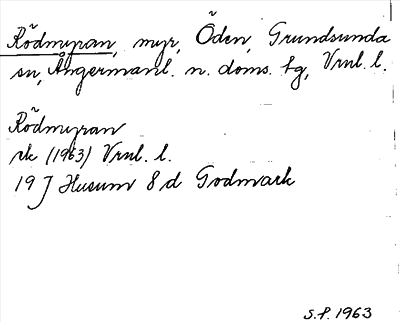 Rödmyran, myr, Öden, Grundsunda
sn, Ångermanl. n. doms. tg, Vrnl. l.
Rödmyran
rk (1963) Vrnl. l.
19 J Husum 8 d Godmark
S.P. 1963